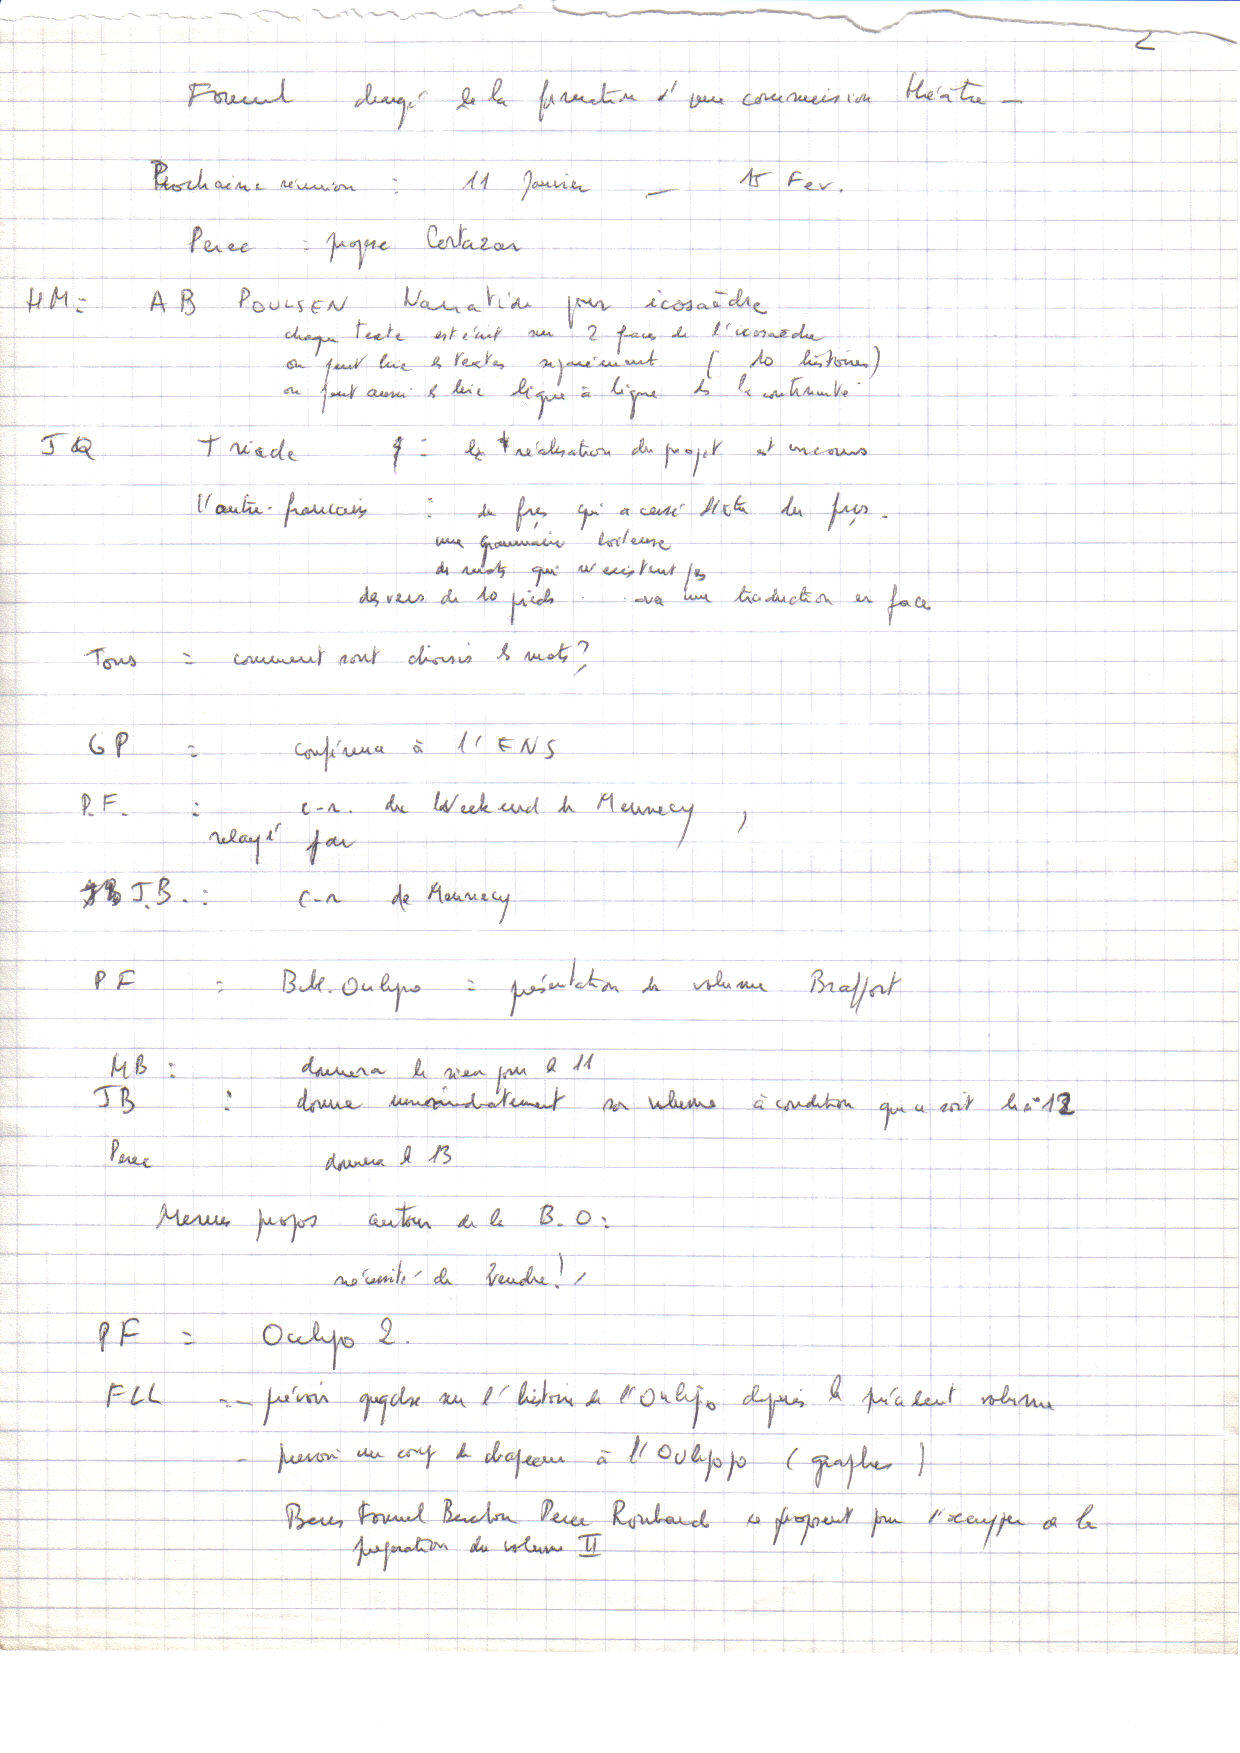 2
Fournel chargé de la formation d'une commission théâtre —
Prochaine réunion : 11 Janvier — 15 Fev.
Perec : propose Cortazar
HM = AB POULSEN Narration pour icosaèdre
chaque texte est écrit sur 2 faces de l'icosaèdre
on peut lire les textes séparément ( 10 histoires)
on peut aussi les lire ligne à ligne ds la continuité
JQ Triade : la réalisation du projet est en cours
l'autre-français : du frçs qui a cessé d'être du frçs.
une grammaire boiteuse
des mots qui n'existent pas
des vers de 10 pieds .. avec une traduction en face
Tous = comment sont choisis les mots?
GP = conférence à l'ENS
P.F. : c-r. du Week end de Mennecy,
relayé par
J.B. : c-r de Mennecy
PF = Bib. Oulipo = présentation du volume Braffort
MB : donnera le sien pour le 11
JB : donne immédiatement son volume à condition que ce soit le n° 12
Perec donnera le 13
Menus propos autour de la B.O :
nécessité de vendre!
PF = Oulipo 2.
FLL = – prévoir qqchse sur l'histoire de l'Oulipo depuis le précédent volume
– prevoir un coup de chapeau à l'Oulipopo (graphes)
Bens Fournel Benabou Perec Roubaud se proposent pour s'occuper de la
preparation du volume II